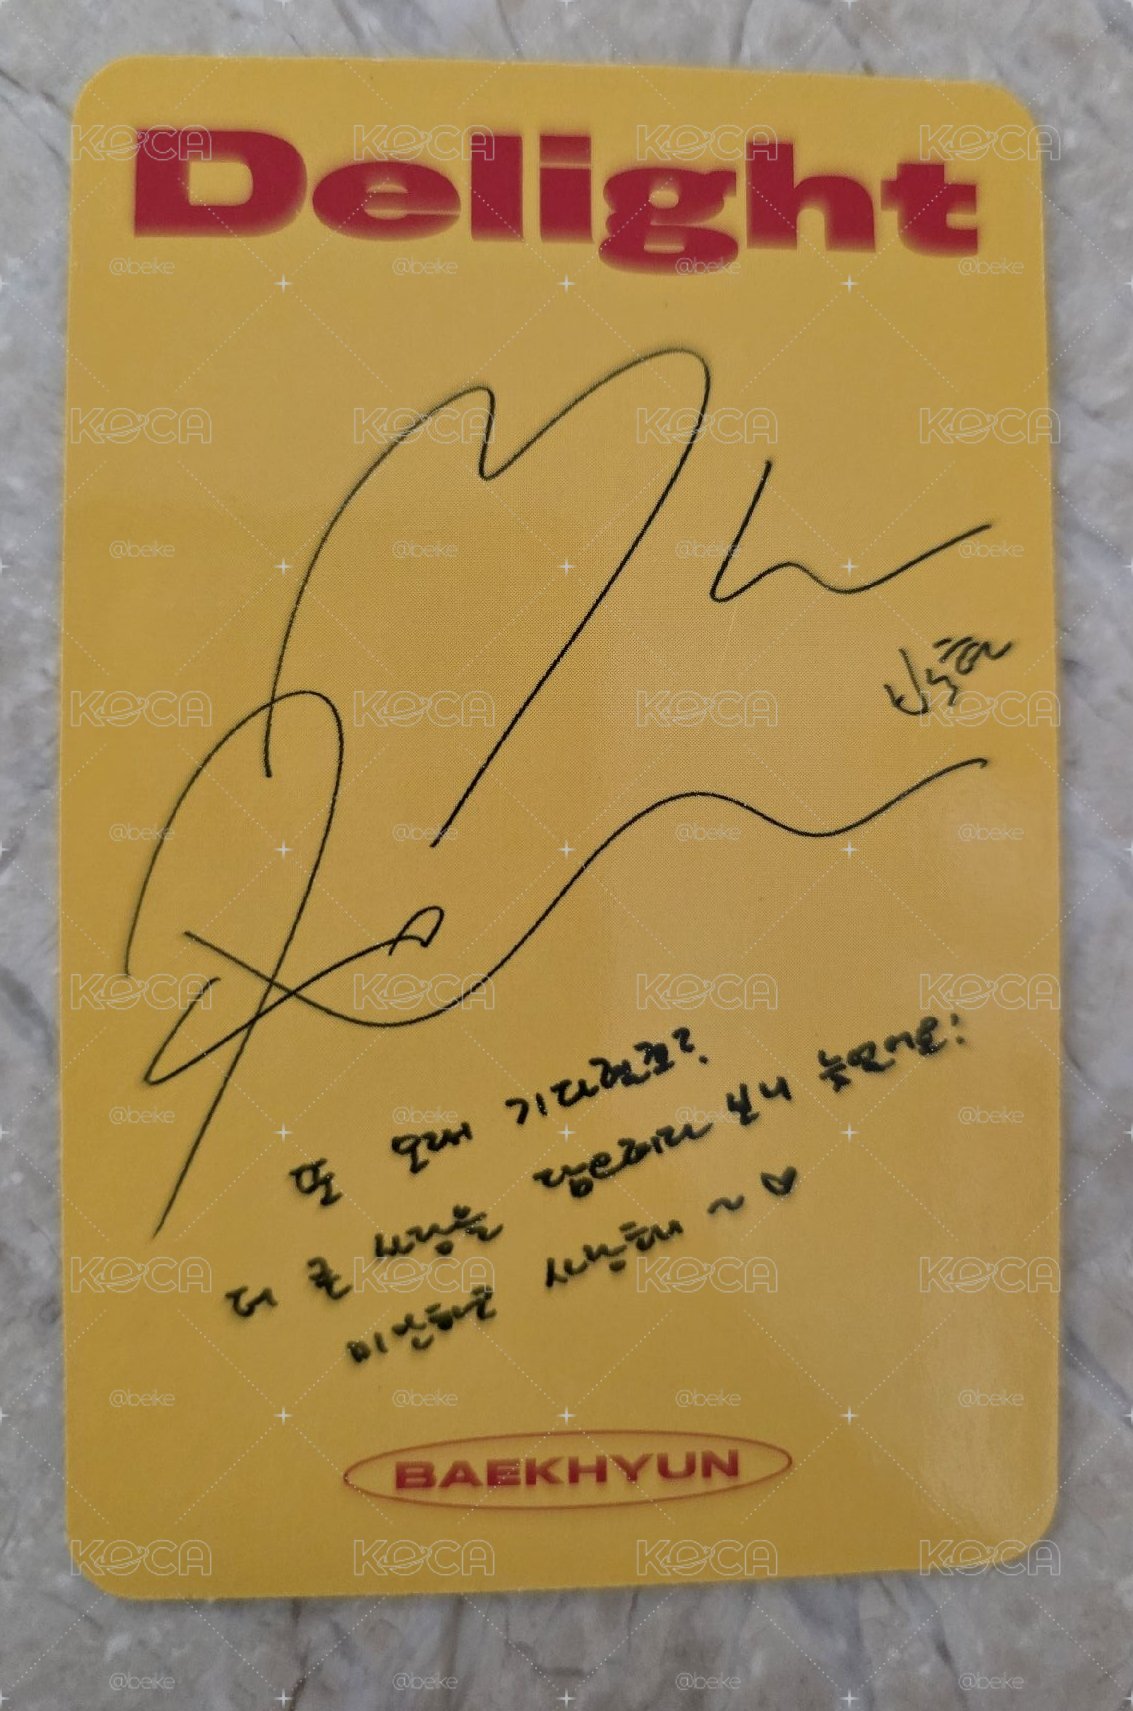 Delight
백현
또 오래 기다렸죠?
더 큰 사랑을 담으려다 보니 늦었어요!
미안하고 사랑해 ~ ♡
BAEKHYUN
KOCA
@beke